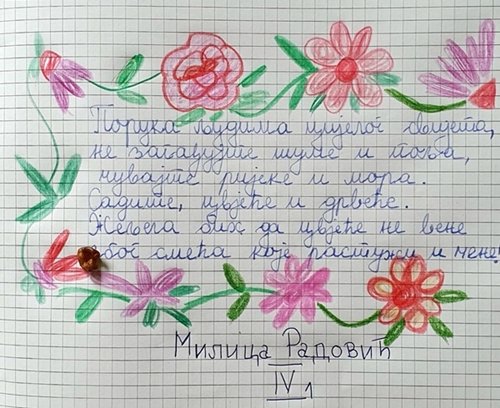 Порука људима цијелог свијета,
не загађујте шуме и поља,
чувајте ријеке и мора.
Садите, цвјеће и дрвеће.
Жељела бих да цвјеће не вене
због смећа које растужи и мене!
Милица Радовић
IV 1